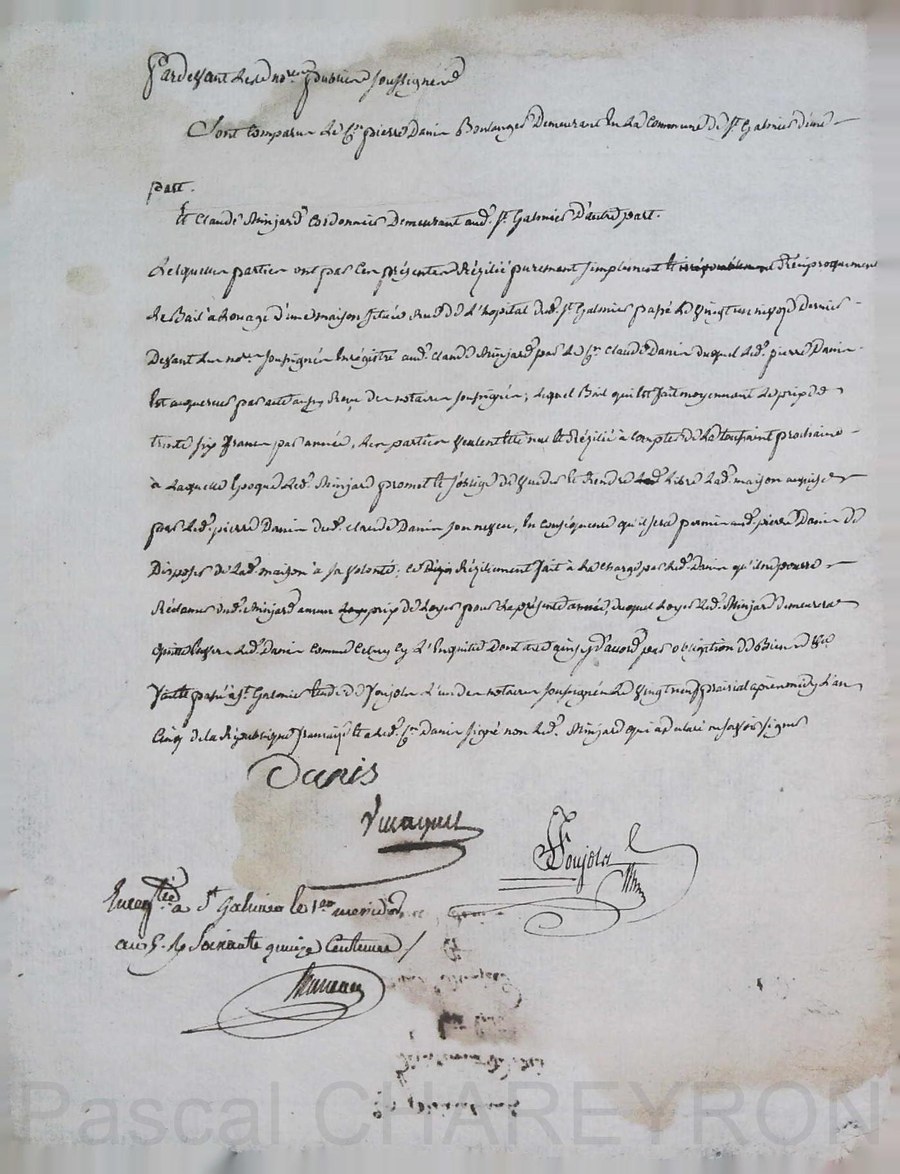 Pardevant les nores publics soussignés
Sont comparus le Cn pierre Danis Boulanger Demeurant en la commune de st Galmier d'une
part.
Et Claude Minjard Cordonnier Demeurant aud. st Galmier D'autre part.
Lesquelles parties ont par ces présentes Rézilié purement simplement et réciproquement
le Bail à Louage d'une maison située rue de L'hopital dud. st Galmier passé le vingt six nivose dernier
Devant les nores soussignés Enregistré aud. claude Minjard par le Cn Claude Danis duquel led. pierre Danis
Est acquereur par acte aussy Reçu des notaires soussignés; lequel Bail qui est fait moyennant le prix de
trente six francs par année, les parties veulent être nul et Rézilié à compter de La toussaint prochaine
à Laquelle Epoque led. Minjard promet et s'oblige de vuider et Rendre Libre Lad. maison acquise
par led. pierre Danis dud. claude Danis son neveu, En conséquence qu'il sera permis aud. pierre Danis de
Disposer de Lad. maison à sa volonté; ce Réziliement fait à la charge par led. Danis qu'il ne pourra
Réclamer dud. Minjard aucun prix de Loyer pour la présente année, duquel Loyer led. Minjard demeurera
quitte Envers led. Danis comme Celuy cy L'En quitte Dont acte ainsy d'accord par obligation de Biens &a
fait et passé à st Galmier Etude de Poujola L'un des notaires soussignés le vingt neuf prairial après midy L'an
Cinq de la République française et a led. Cn Danis signé non led. Minjard qui a déclaré ne savoir signer
Danis
Poujola
Enregtré a St Galmier le 1er messidor
an 5. R. Soixante quinze Centimes /
Pascal CHAREYRON